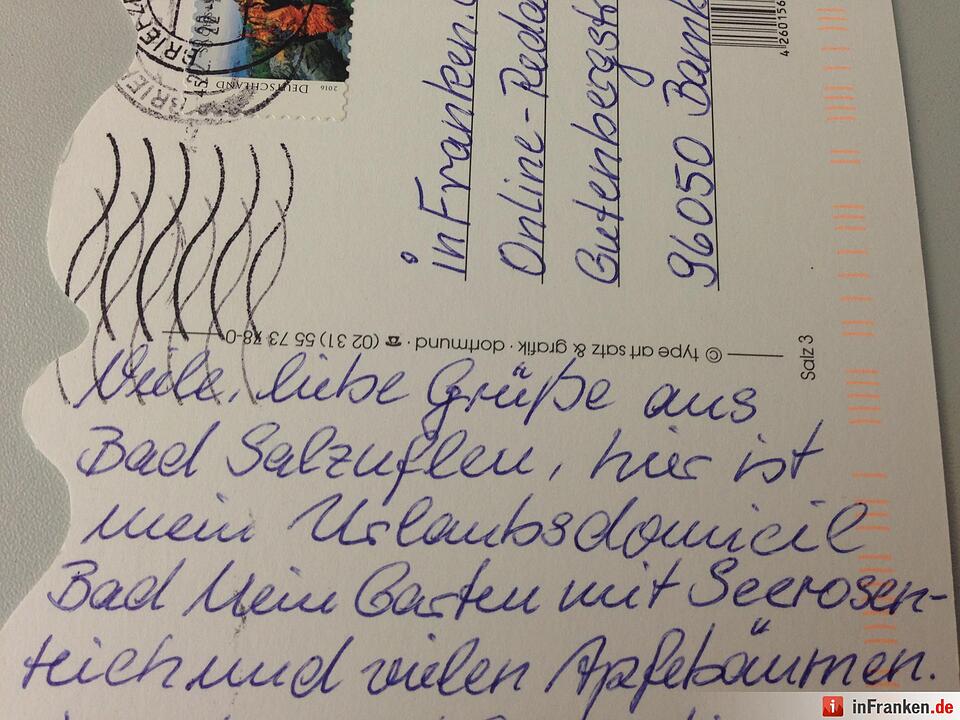 Viele, liebe Grüße aus
Bad Salzuflen, hier ist
mein Urlaubsdomicil
Bad Mein Garten mit Seerosen-
teich und vielen Apfelbäumen.
inFranken.
Online-Reda
Gutenbergstr
96050 Bam
© type art satz & grafik · dortmund · ☎ (02 31) 55 73 78-0
Salz 3
DEUTSCHLAND 2016
BRIEF
BRIE
4 260156
inFranken.de